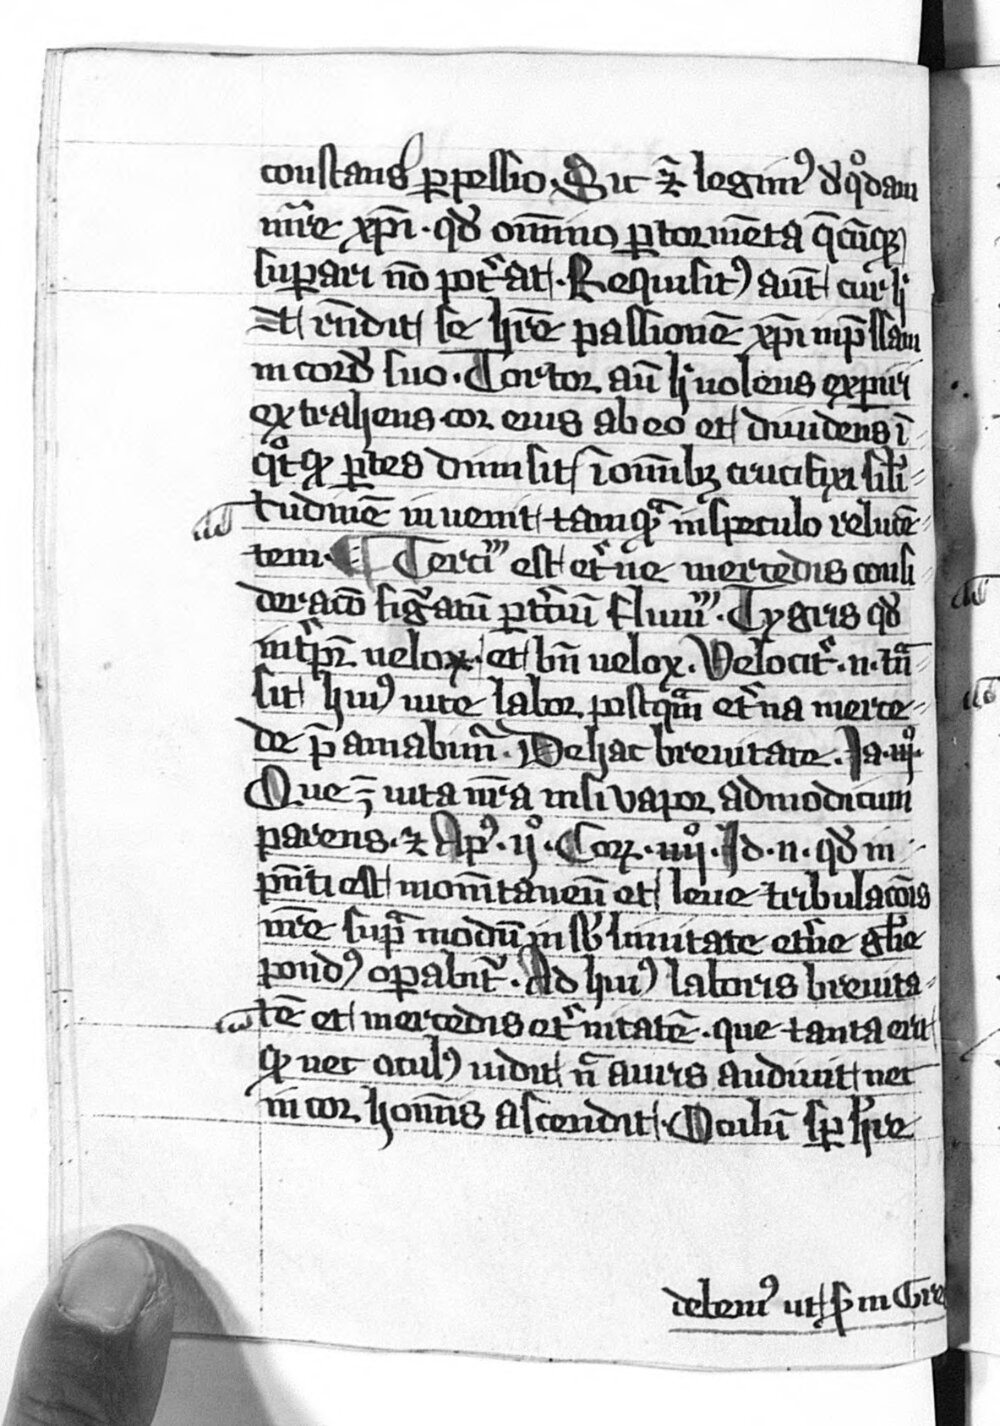 constans ꝑpessio. Sic ⁊̄ legimꝰ d̵ qͦdam
mr̄e xp̄i. qd̵ om̄ino ꝑ tormēta q̄cūqꝫ
suꝑari nō pot̓at. Requisitꝰ aūt cur h̓
r̄ndit se hr̄e passionē xp̄i imp̄ssam
in cord̵ suo. Tortor aū h̓ uolens exꝑiri
extrahens cor eius ab eo et diuidens ī
ꝑtes diuisit ī om̄ibꝫ crucifixi sil̓i
tudinē inuenit tamqᷓ in speculo relucē
tem. Terciū est et̓ne mercedis consi
deracō fig̓atū ꝑ t̓ciū fluuiū. Tygris qd̵
int̓p̄r̄ velox. et bn̄ uelox. Velocit̓. n. tn̄
sit huiꝰ uite labor postqᷓm et̓na merce
de p̄amabim̄. De hac breuitate. Ja. iiijͦ.
Que ē uita nr̄a nisi vapor ad modicum
parens. ⁊ Apꝰ. ijͦ. Corꝝ. iiijͦ. Id. n. qd̵ in
pn̄ti est mom̄taneū et leue tribulacōis
nr̄e supᷓ modū in sb̓limitate et̓ne gl̓ie
pondꝰ oꝑabit̓. Ad huiꝰ laboris breuita
tē et mercedis et̓nitatē. que tanta erit
qꝫ nec oculꝰ uidit n̄ auris audiuit nec
in cor homīs ascendit. Oculū sꝑ hr̄e
debemꝰ ut s̄ in Gre